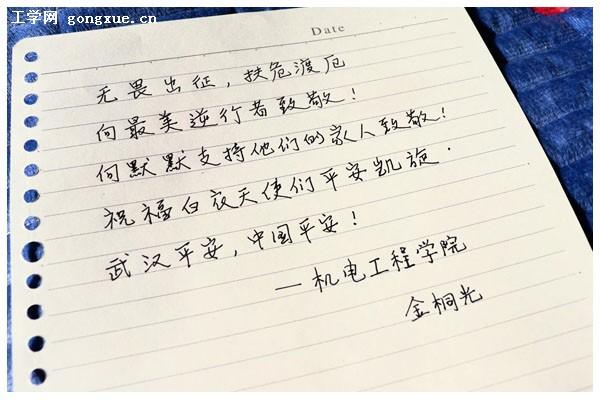 工学网 gongxue.cn
Date
无畏出征，扶危渡厄
向最美逆行者致敬！
向默默支持他们的家人致敬！
祝福白衣天使们平安凯旋．
武汉平安，中国平安！
—机电工程学院
金桐光